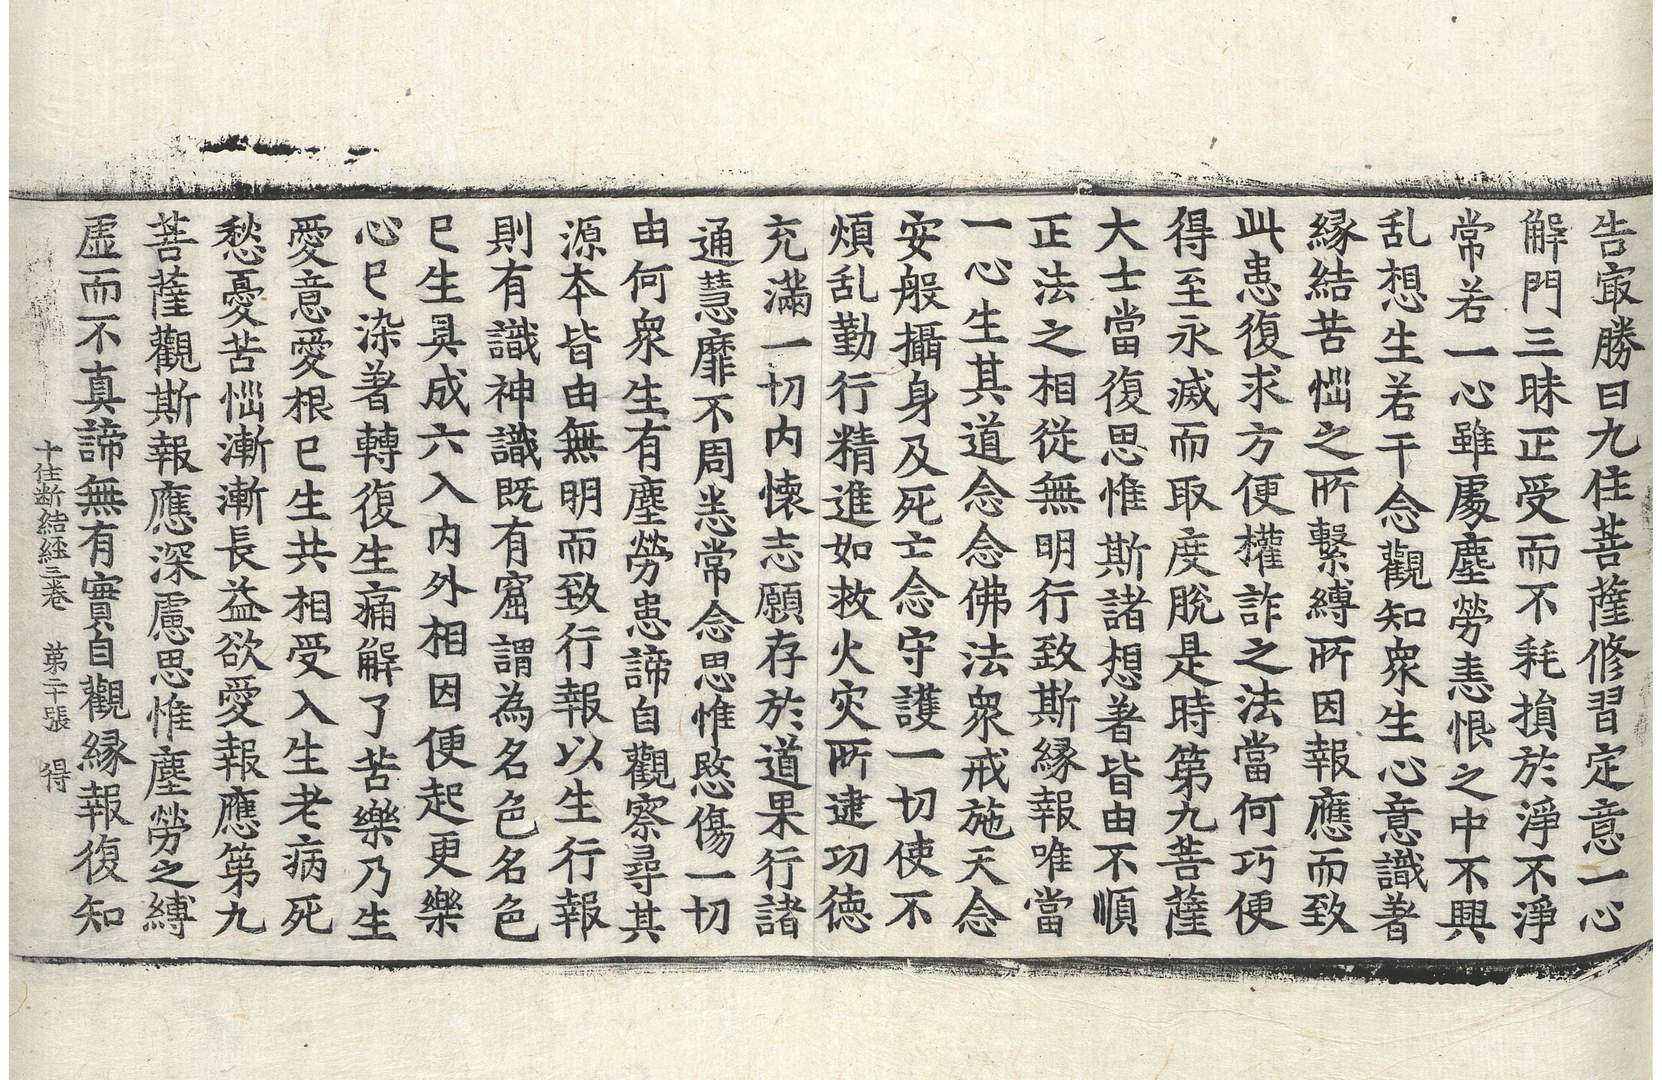 告㝡勝曰九住菩薩修習定意一心
解門三昧正受而不耗損於淨不淨
常若一心雖處塵勞恚恨之中不興
乱想生若干念觀知衆生心意識著
縁結苦惱之所繫縛所因報應而致
此患復求方便權詐之法當何巧便
得至永滅而取度脫是時第九菩薩
大士當復思惟斯諸想著皆由不順
正法之相從無明行致斯縁報唯當
一心生其道念念佛法衆戒施天念
安般攝身及死亡念守護一切使不
煩乱勤行精進如救火灾所逮功德
充滿一切内懐志願存於道果行諸
通慧靡不周悉常念思惟愍傷一切
由何衆生有塵勞患諦自觀察尋其
源本皆由無明而致行報以生行報
則有識神識既有窟謂為名色名色
已生具成六入内外相因便起更樂
心已染著轉復生痛解了苦樂乃生
愛意愛根已生共相受入生老病死
愁憂苦惱漸漸長益欲愛報應第九
菩薩觀斯報應深慮思惟塵勞之縛
虛而不真諦無有實自觀縁報復知
十住断結経三卷 第二十張 得